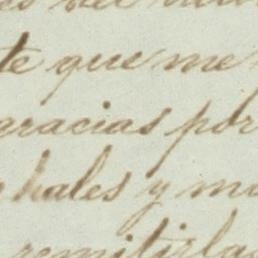 te que me
gracias por
hales y m
remitirla